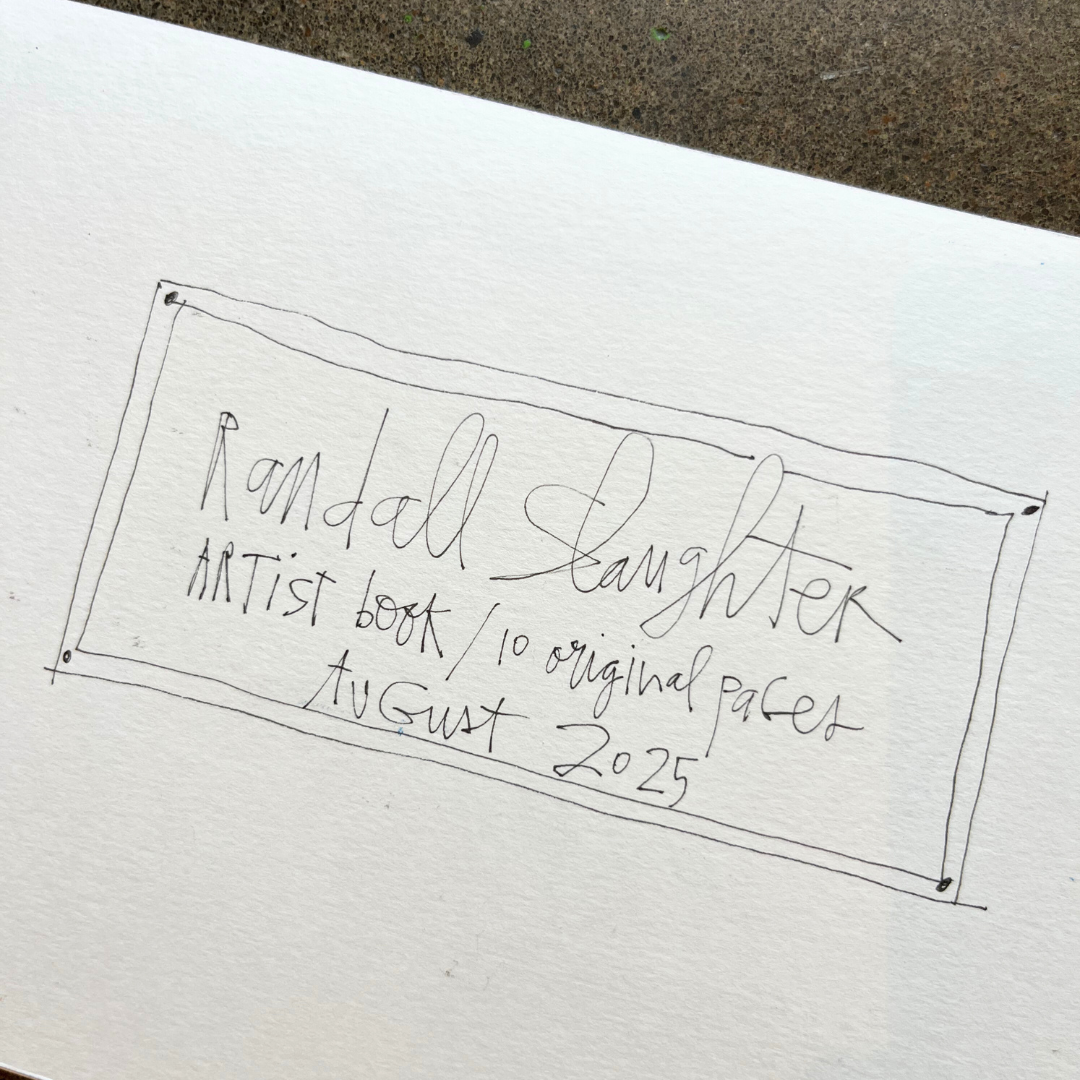 Randall Slaughter
ARTist book / 10 original paGes
AuGust 2025